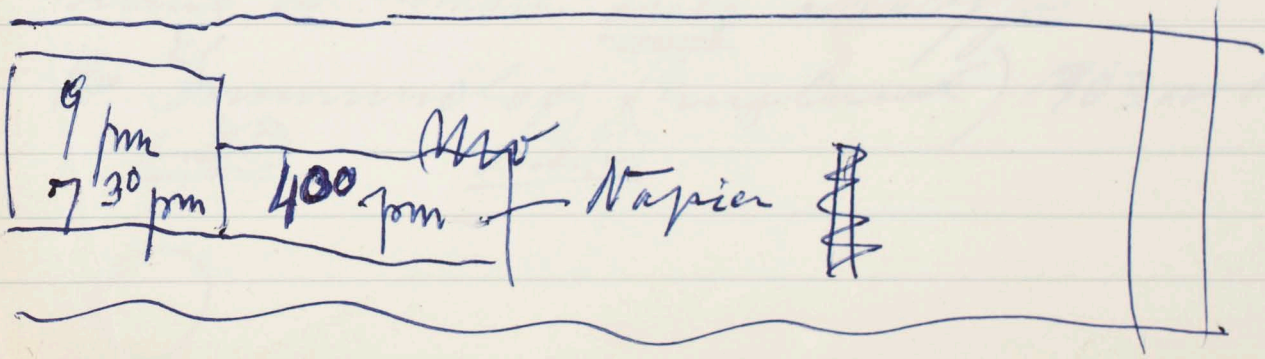 9 pm
7 30 pm
400 pm - Napier